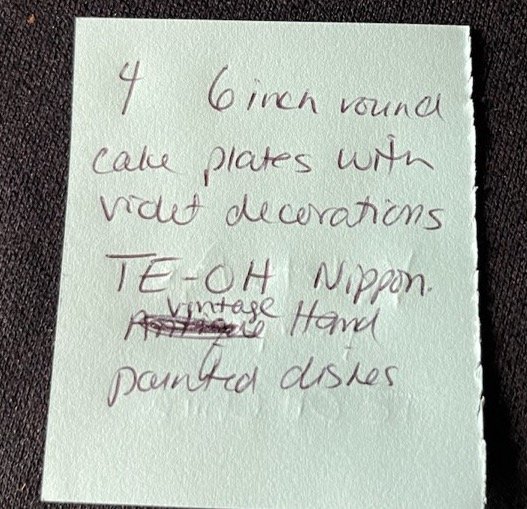 4 6 inch round
cake plates with
violet decorations
TE-OH Nippon.
vintage Hand
painted dishes